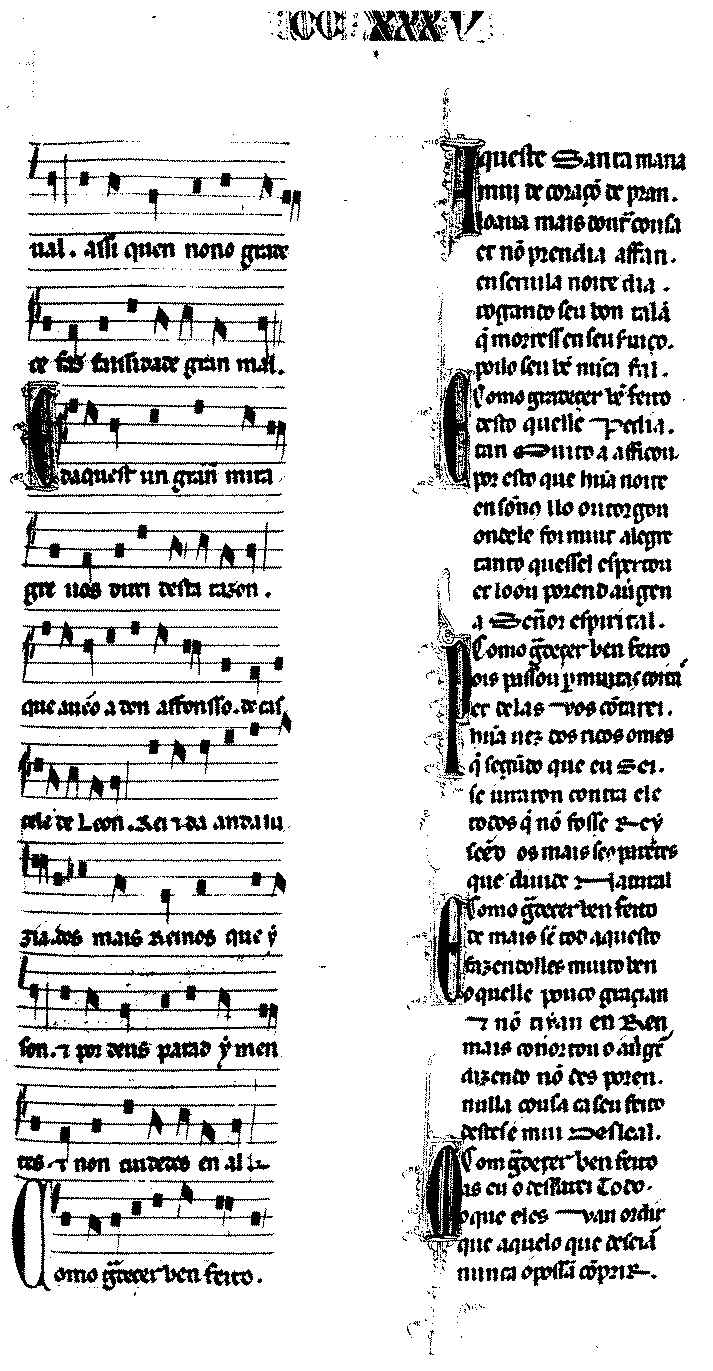 CCXXXV
ual. assi quen nono grade
ce faz falssidade gran mal.
E daquest un gran mira
gre uos direi desta razon.
que aueo a don affonsso. de cas
tela de Leon. Rei ⁊ da andalu
zia. dos mais Reinos que ý
son. ⁊ por deus parad ý men
tes. ⁊ non cuidedes en al
Como g̃decer ben feito.
Aqueste Santa maria
mui de coraçõ de pran.
loaua mais doutˀ cousa
et nõ prendia affan.
en seruila noite dia.
rogando seu bon talã
q̃ morress en seu seruiço.
poilo seu bẽ nũca fal.
Como gradecer bẽ feito
E desto quelle Pedia.
tan Muito a afficou.
por esto que hũa noite
en soño llo outorgou
ondele foi mui alegre
tanto quessel espertou
et loou porend a uirgen
a Señor espirital.
Como g̃decer ben feito
Pois passou p muitas coitas
et delas vos cõtarei.
hũa uez dos ricos omes
q̃ segũdo que eu Sei.
se iuraron contra ele
todos q̃ nõ fosse Reý
seẽd os mais seos parẽtes
que diuide Natural
Como g̃decer ben feito
E de mais sẽ tod aquesto
fazendolles muito ben
o quelle pouco graçian
⁊ nõ tiñan en Ren
mais conortou o a uirgẽ
dizendo nõ des poren.
nulla cousa ca seu feito
destes e mui Desleal.
Com g̃decer ben feito
Mas eu o desfarei Todo.
o que eles van ordir
que aquelo que deseiã
nunca o possã cõprir.